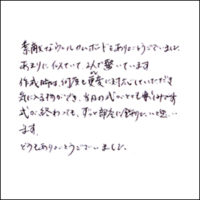 素敵なウェルカムボードをありがとうございました。
あまりに似ていて、2人で驚いています
作成時は何度も変更に対応していただき
気に入る物ができ、当日の式がとても楽しみです
式が終わっても、ずっと部屋に飾りたいと思い
ます。
どうもありがとうございました。